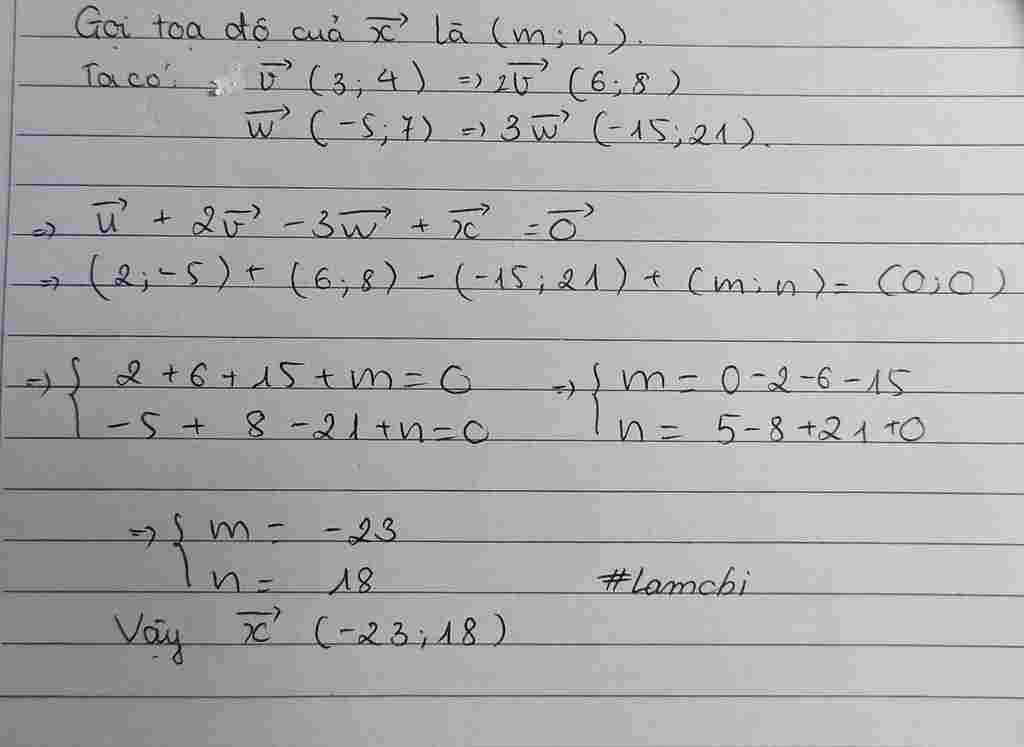 Gọi toạ độ cuả x⃗ là (m; n).
Ta có: v⃗ (3; 4) => 2v⃗ (6; 8)
w⃗ (-5; 7) => 3w⃗ (-15; 21).
=> u⃗ + 2v⃗ - 3w⃗ + x⃗ = 0⃗
=> (2; -5) + (6; 8) - (-15; 21) + (m; n) = (0; 0)
=> { 2 + 6 + 15 + m = 0 => { m = 0 - 2 - 6 - 15
-5 + 8 - 21 + n = 0 n = 5 - 8 + 21 + 0
=> { m = -23
n = 18 #lamchi
Vậy x⃗ (-23; 18)